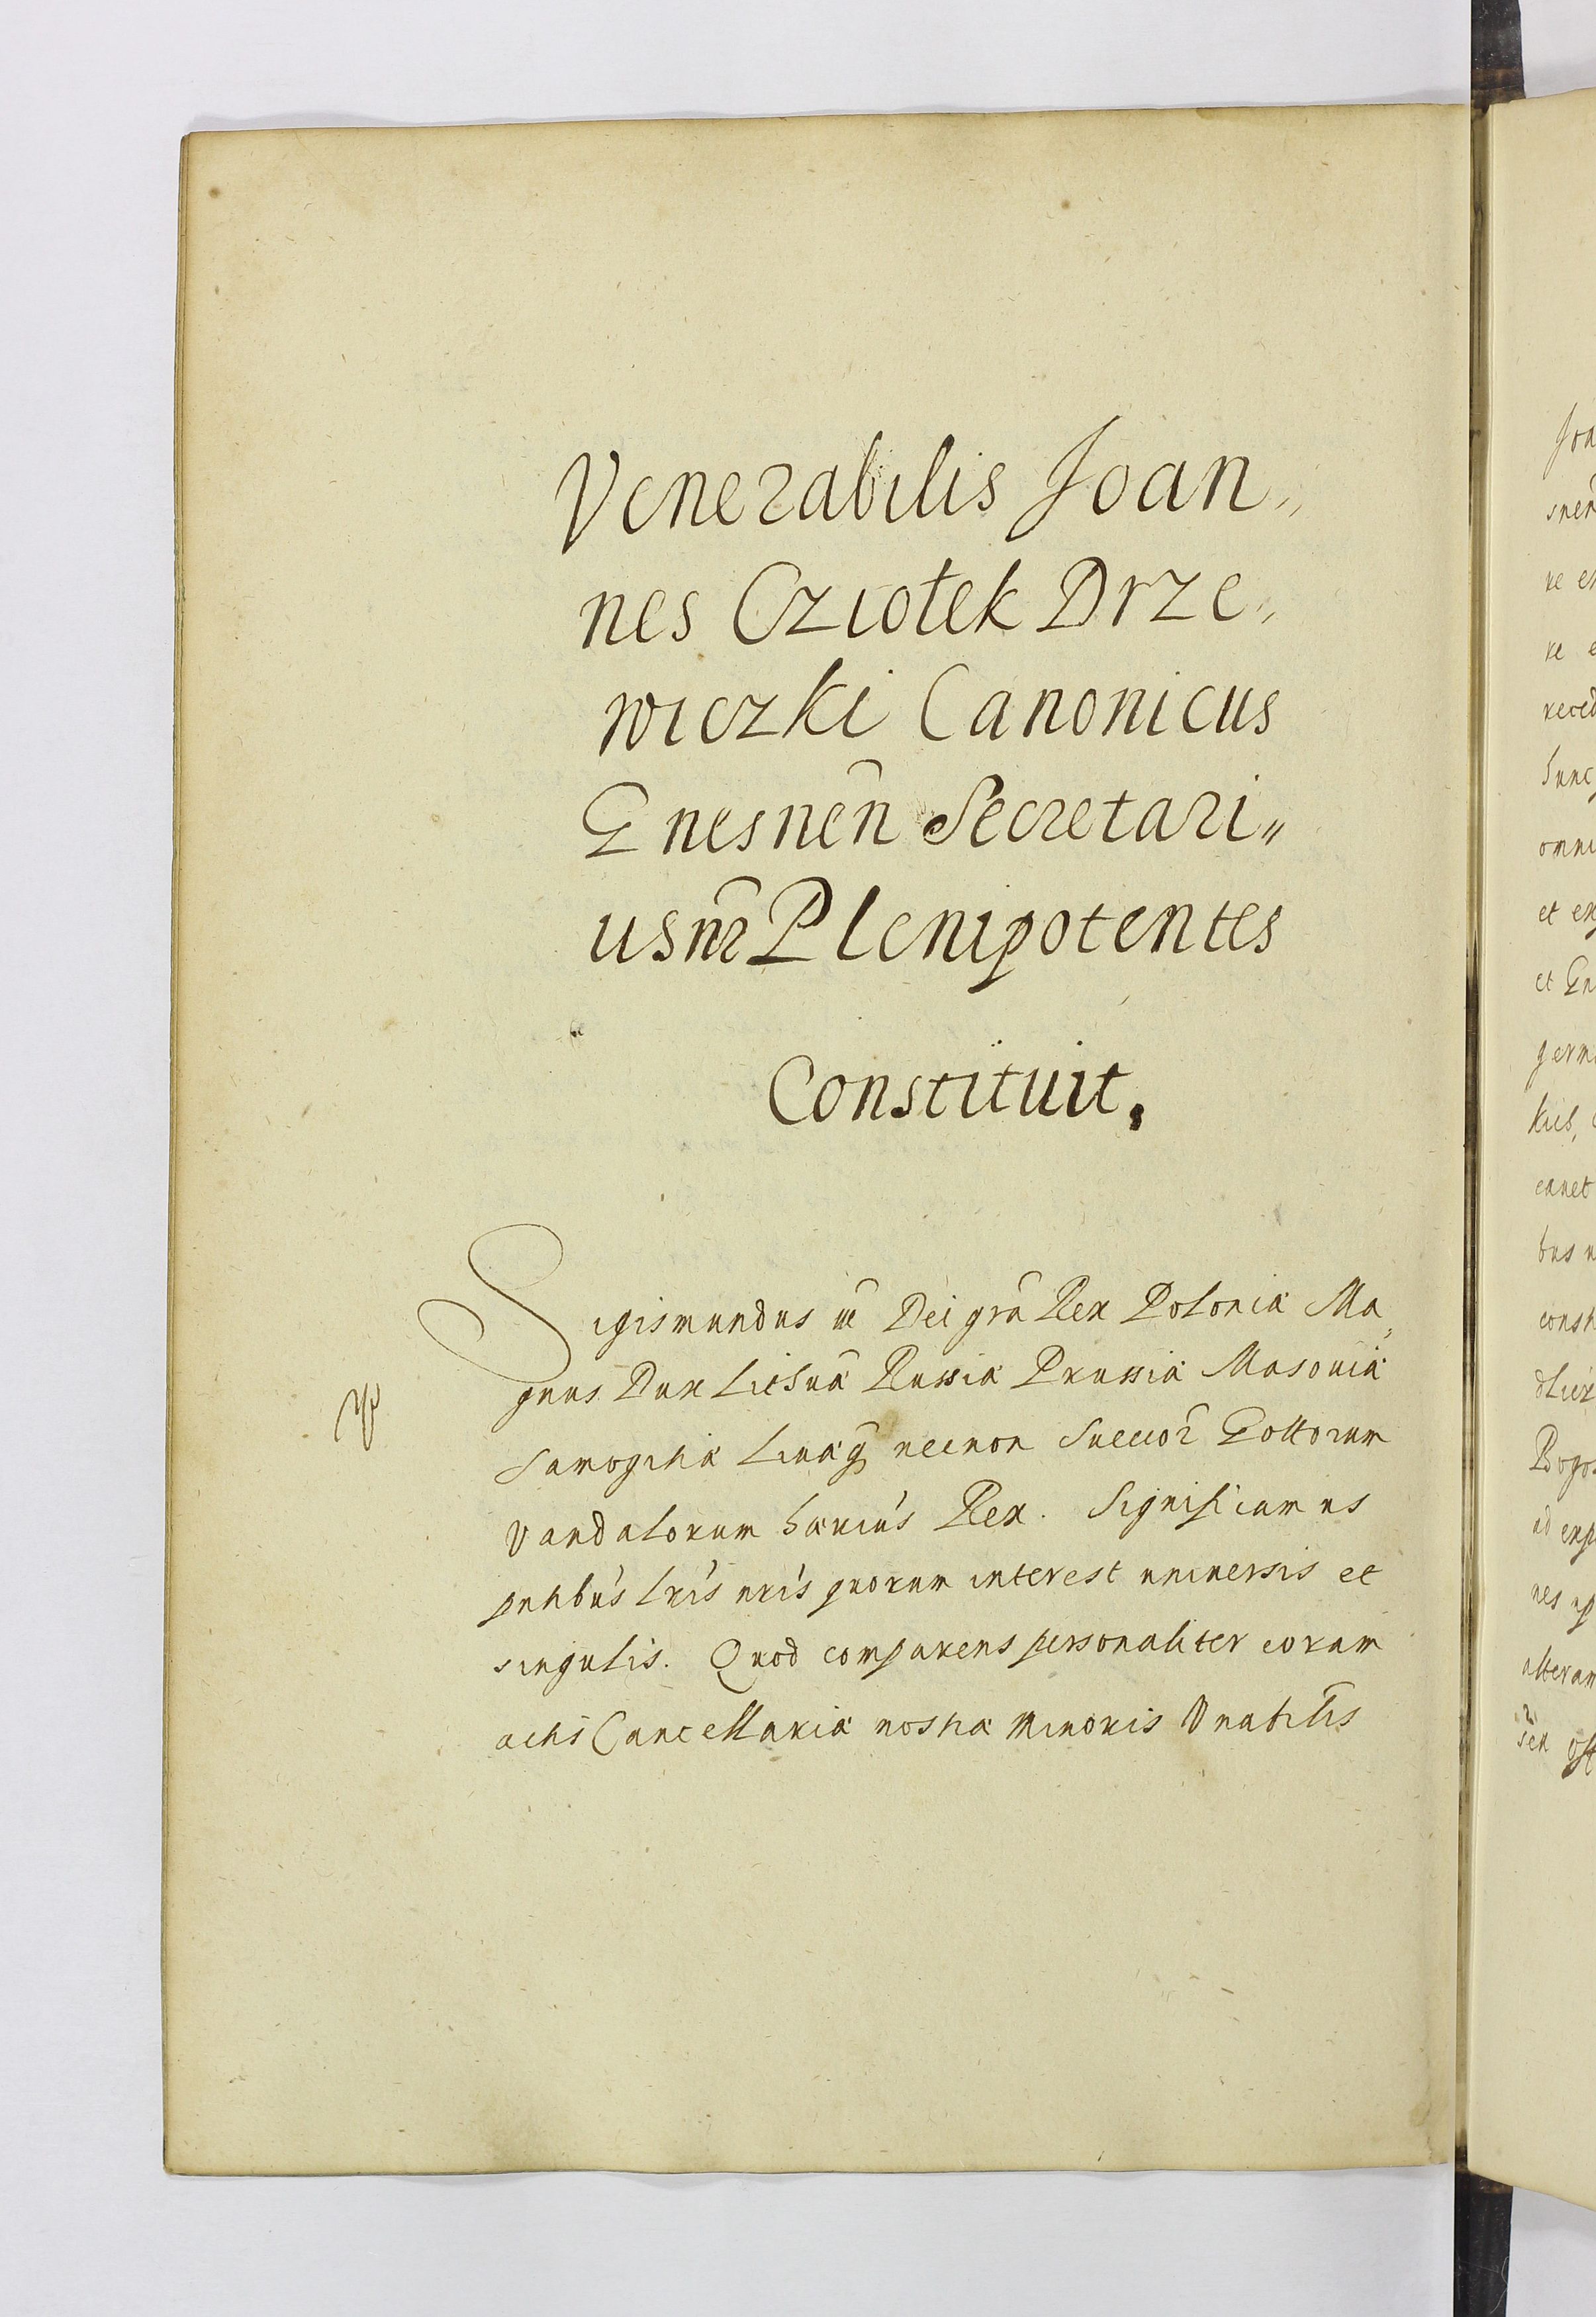 Venerabilis Joan„
nes Cziołek Drze„
wiczki Canonicus
Gnesnen̄ Secretari„
us nr̄ Plenipotentes
Constituit.
Sigismundus iii Dei grã Rex Poloniæ Ma„
gnus Dux Lithuã Russiæ Prussiæ Masoviæ
Samogitiæ Livãq necnon Suecor̃ Gottorum
Vandalorum hærius Rex. Significamus
pntibus lris nris quorum interest universis et
singulis. Quod comparens personaliter coram
actis Cancellariæ nostræ minoris Vnabilis
Joa
snen̄
re e
re e
reced
hunc
omni
et ex
et Gn
germ
kies,
canet
bus
const
dlier
Rogo
ad exp
nes
alteram
seu